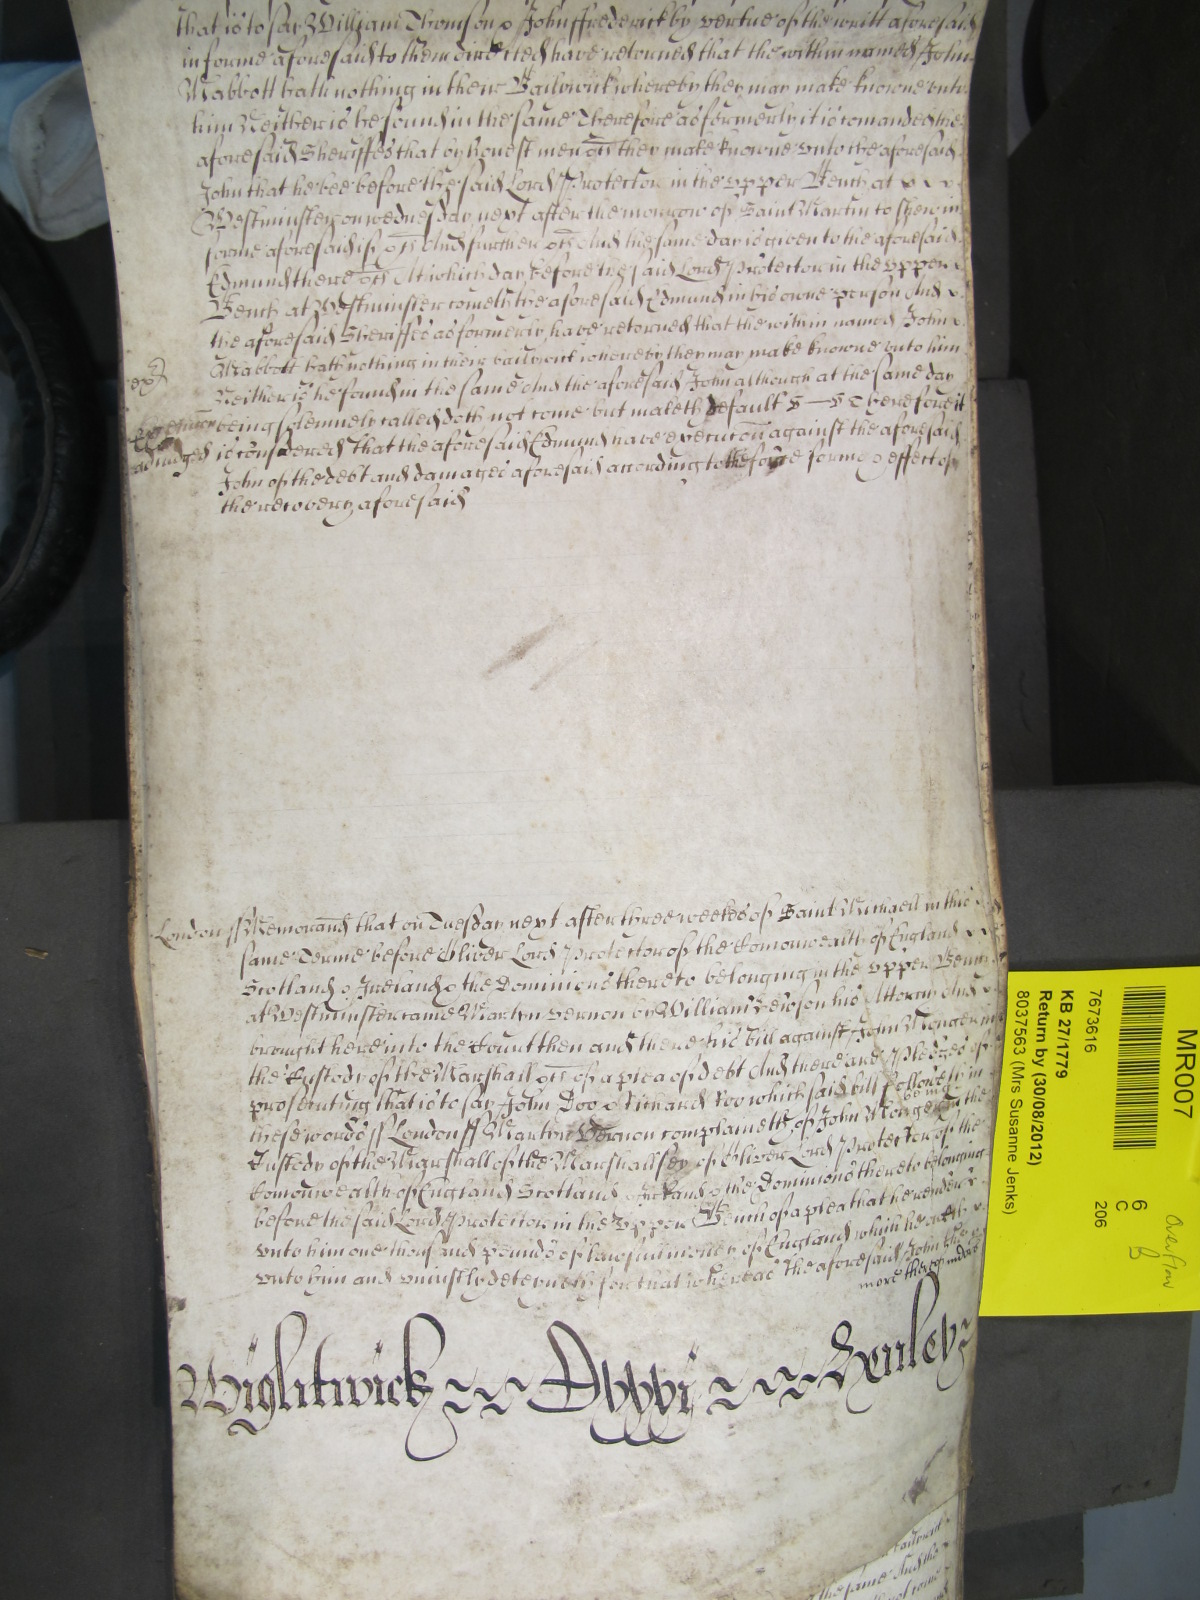 that is to say William Thomson & John ffrederick by vertue of the writt aforesaid
in forme aforesaid to them directed have retorned that the within named John
Mabbott hath nothing in their Bailiwick whereby they may make knowne unto
him Neither is he found in the same Therefore as formerly it is comanded the
aforesaid Sheriffes that by honest men &c they make knowne unto the aforesaid
John that he bee before the said Lord Protector in the upper Bench at
Westminster on wednesday next after the morrow of Saint Martin to shew in
forme aforesaid if &c And further &c And the same day is given to the aforesaid
Edmund there &c At which day before the said Lord Protector in the upper
Bench at Westminster cometh the aforesaid Edmund in his owne person And
the aforesaid Sheriffes as formerly have retorned that the within named John
Mabbott hath nothing in their bailiwick whereby they may make knowne unto him
Neither is he found in the same And the aforesaid John although at the same day
being solemnely called doth not come but maketh default Therefore it
adiudged is considered That the aforesaid Edmund have execucion against the aforesaid
John of the debt and damages aforesaid according to the force forme & effect of
the recovery aforesaid
London ss Memorand that on Tuesday next after three weekes of Saint Michaell in this
same Terme before Oliver Lord Protector of the Comonwealth of England
Scotland & Ireland & the Dominions thereto belonging in the upper Bench
at Westminster came Martyn Vernon by William his Attorny And
brought here into the Court then and there his bill against John Monger in
the Custody of the Marshall &c of a plea of debt And there are Pledges of
prosecuting that is to say John Doo & Richard Roo which said bill followeth in
these words ss London ss Martyn Vernon complaineth of John Monger being in the
Custody of the Marshall of the Marshallsey of Oliver Lord Protector of the
Comonwealth of England Scotland & Ireland & the Dominions thereto belonging
before the said Lord Protector in the Upper Bench of a plea that he render
unto him one thousand pounds of lawfull money of England which he oweth
unto him and uniustly deteyneth for that whereas the aforesaid John the
more thereof
Wightwick Henley
MR007
7673616
KB 27/1779
Return by (30/08/2012)
8037563 (Mrs Susanne Jenks)
6
C
206
Overflow
B